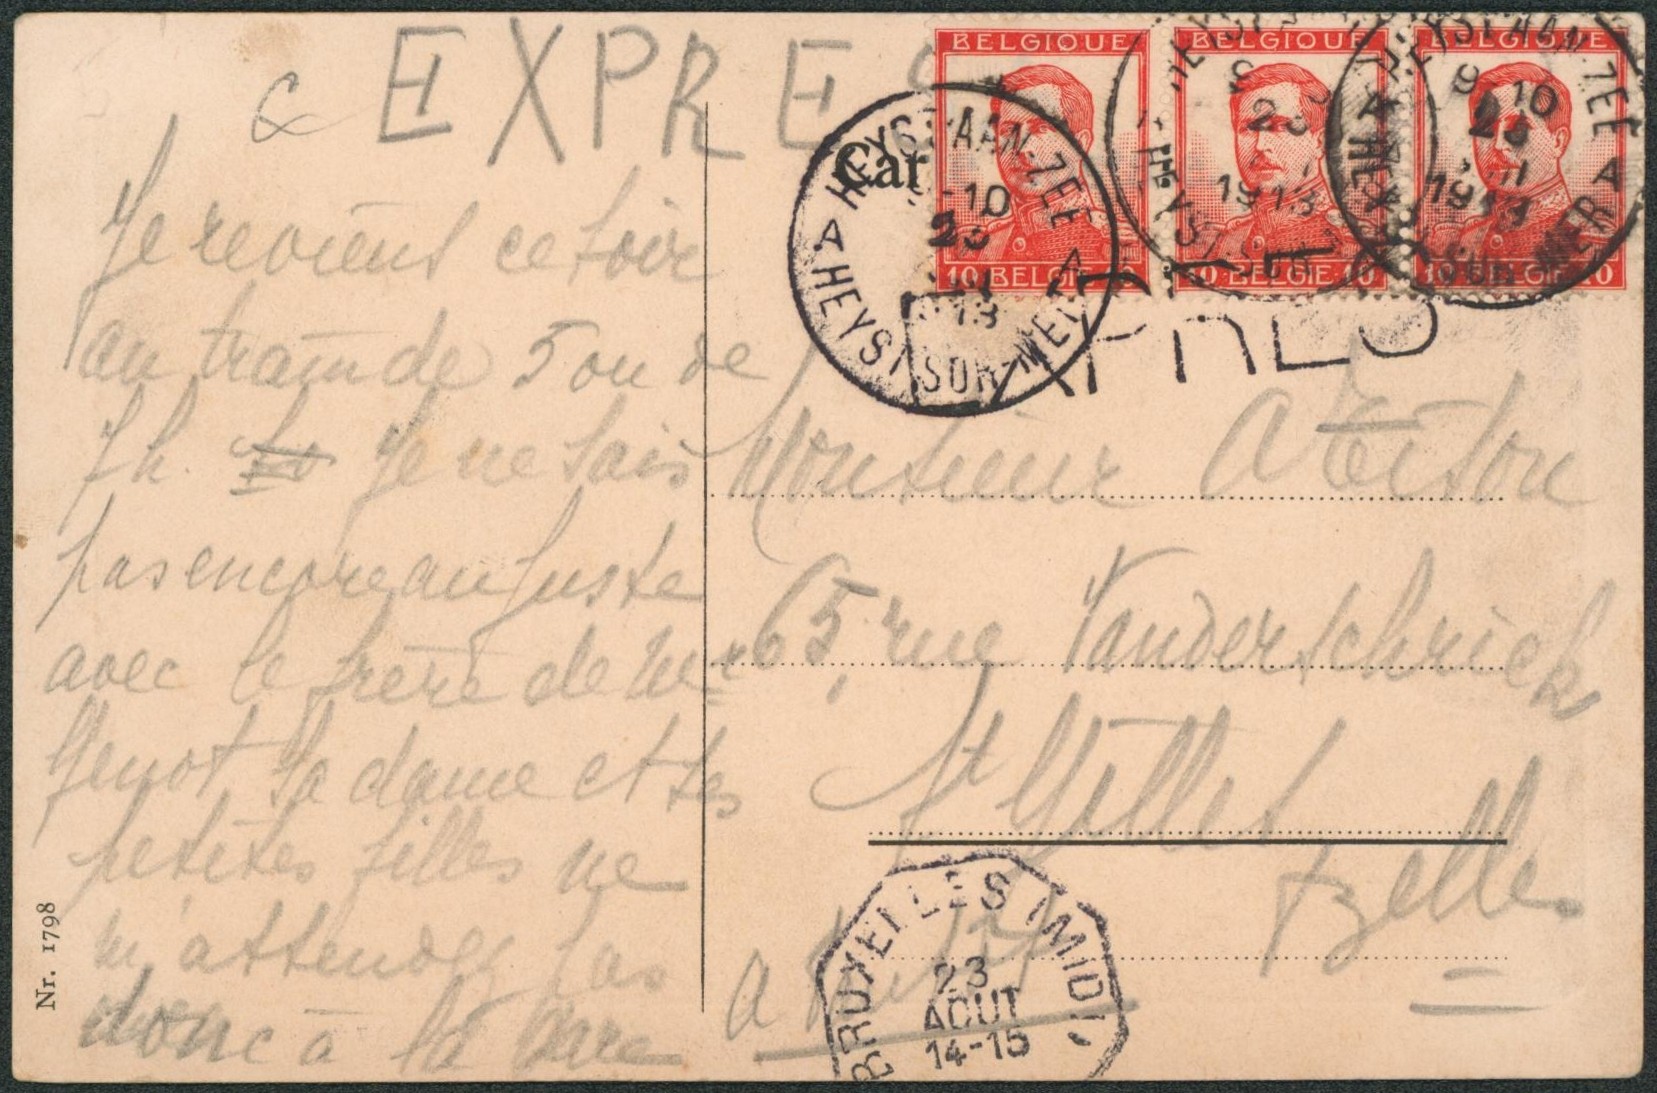 EXPRES
BELGIQUE BELGIQUE BELGIQUE
10 BELGIE 10 BELGIE 10 10 BELGIE 10
HEYST-AAN-ZEE
HEYST-SUR-MER
-10
23
13
HEYST SUR
23
1913
HEYST-AAN-ZEE
HEYST SUR MER
9 10
23
1913
EXPRES
Car
Je reviens ce soir
au train de 5 ou de
7 h. Je ne sais
pas encore au juste
avec le frère de Mr
Genot sa dame et ses
petites filles ne
m'attendez pas
donc à la gare
Monsieur A Teiton
65, rue Vanderschrick
St Gilles
Bxelles
a
BRUXELLES (MIDI)
23
AOUT
14-15
Nr. 1798